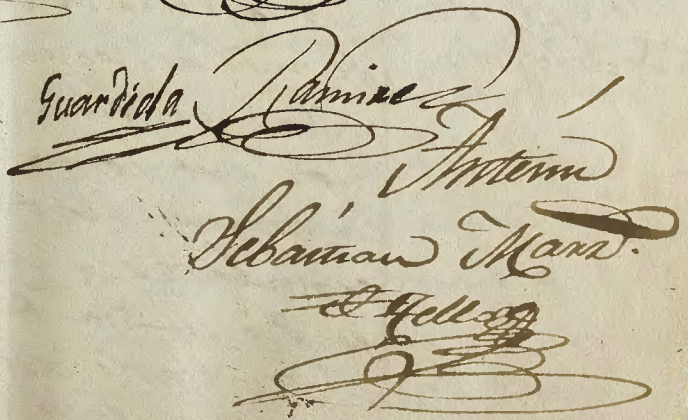 Guardiola Ramirez
Antem
Sebastian Mara.
Tello